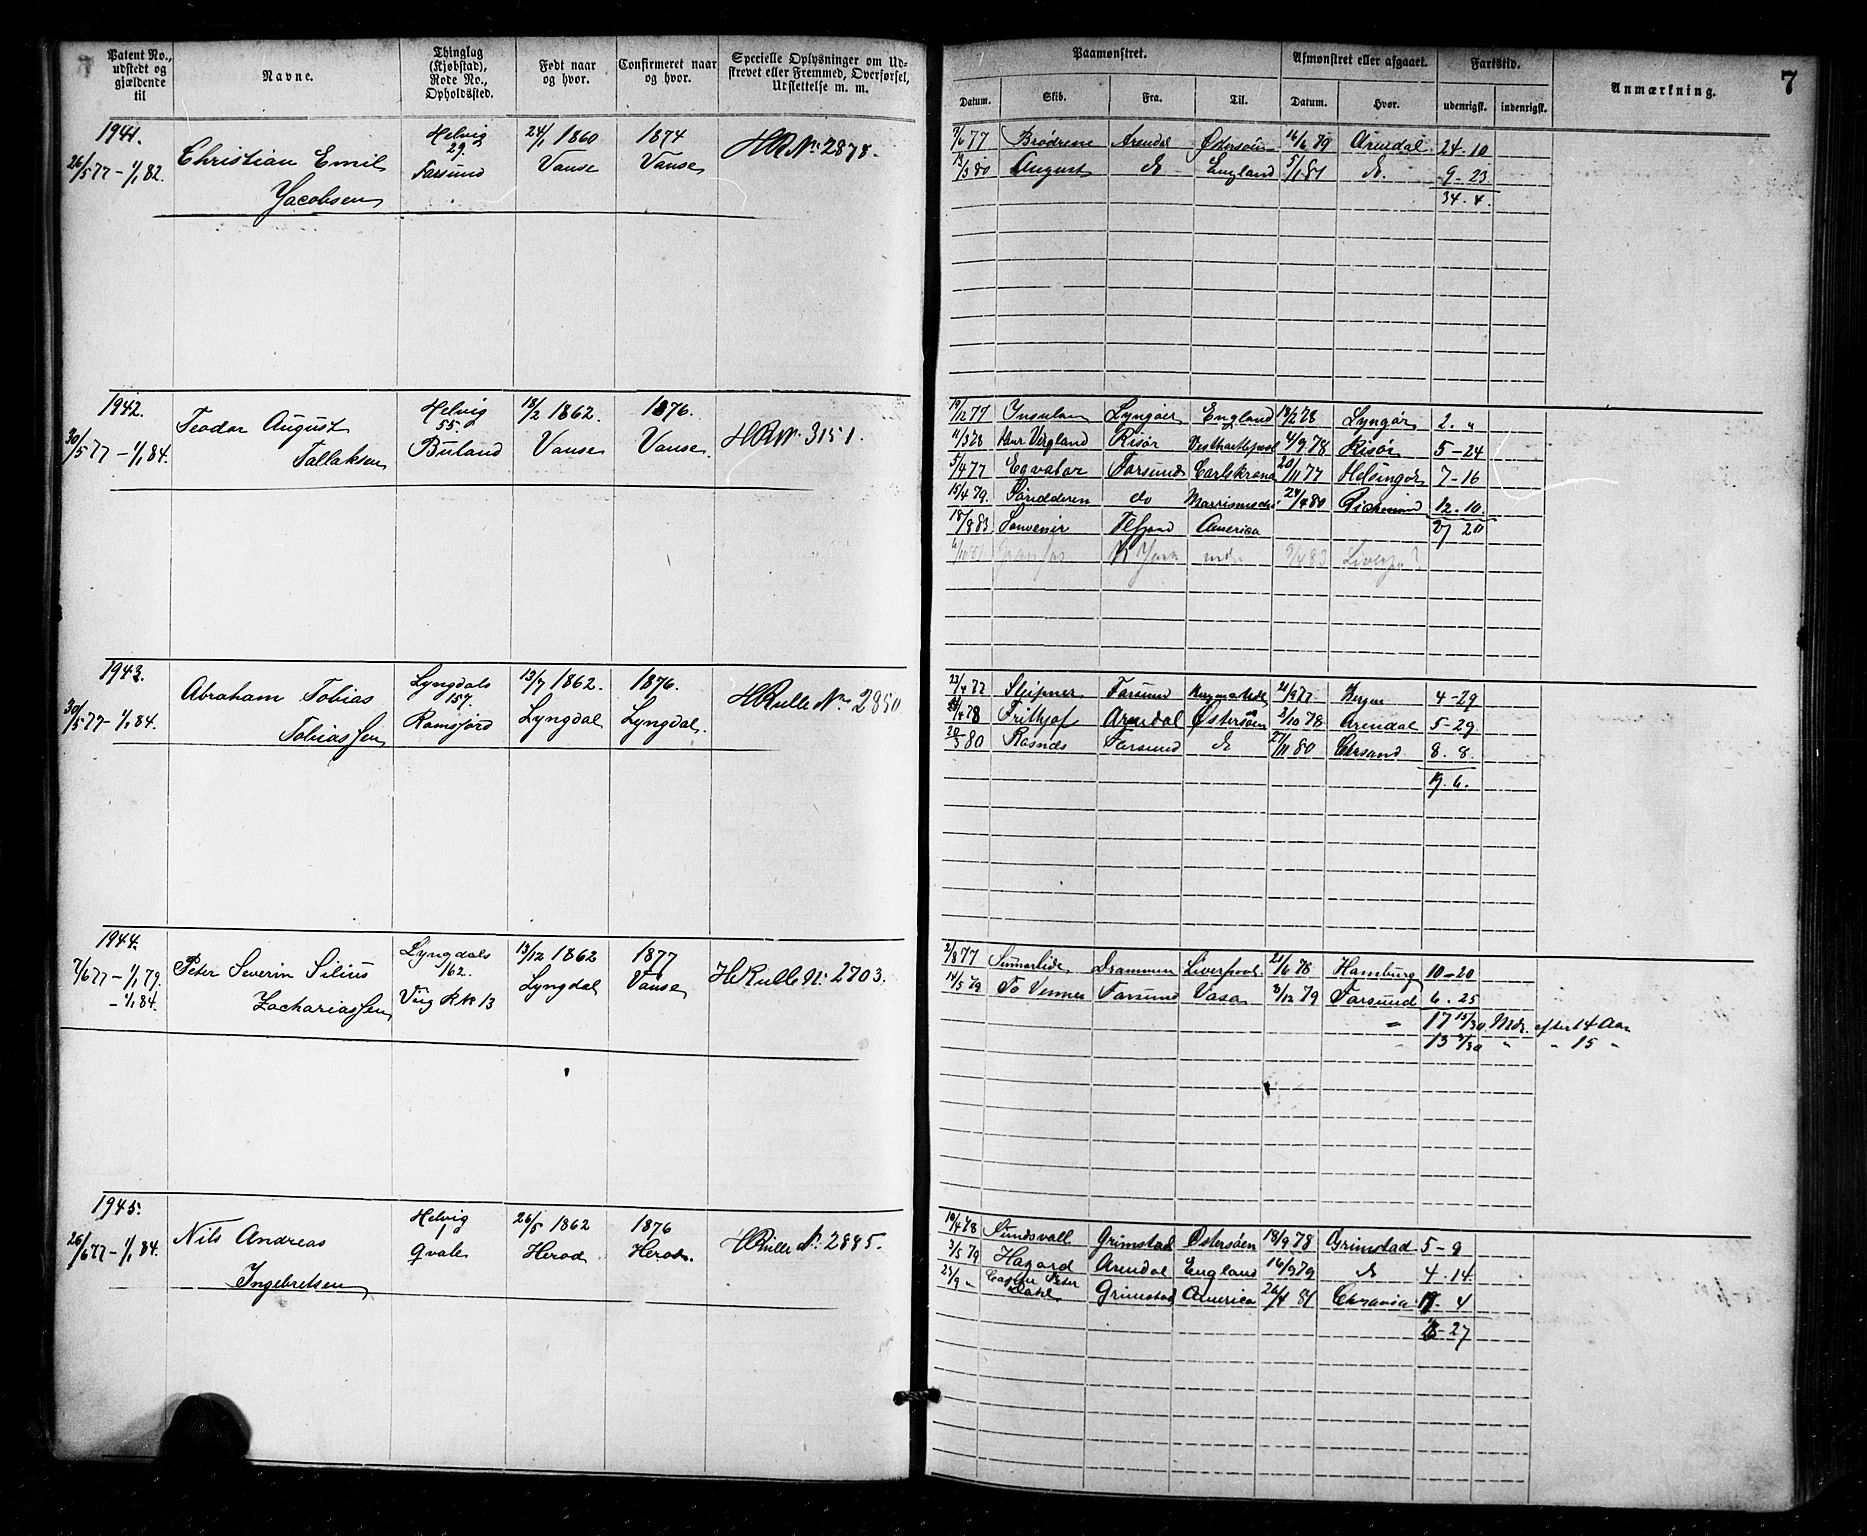 Patent No., udstedt og gjældende til
Navne.
Thinglag (Kjøbstad), Rode No., Opholdssted.
Født naar og hvor.
Confirmeret naar og hvor.
Specielle Oplysninger om Udskrevet eller Fremmed, Overførsel, Udslettelse m. m.
Paamønstret.
Afmønstret eller afgaaet.
Fartstid.
Anmærkning.
7
Datum. Skib. Fra. Til. Datum. Hvor. udenrigsk. indenrigsk.
1941.
26/5 77 – 1/1 82.
Christian Emil
Jacobsen
Helvig
29
Farsund
24/1 1860
Vanse
1874
Vanse
HR No 2878.
7/6 77 Brødrene Arendal Østersøen 16/6 79 Arendal 24-10
August do England 5/1 81 do 9-23
34. 4.
1942.
30/5 77 – 1/1 84.
Teodor August
Tallaksen
Helvig
55.
Buland
18/2 1862.
Vanse
1876.
Vanse.
HR No 3151.
19/12 77 Lyngøer England Lyngør 2. "
Risør 4/9 78 Risør 5-24
5/4 77 Eqvator Farsund Carlskrona 77 Helsingør 7-16
15/4 79. do 24/4 80 12.10.
18/8 83 Souvenir America 27 20
N York 83
1943.
30/5 77 – 1/1 84.
Abraham Tobias
Tobiassen
Lyngdals
157.
Ramsfjord
13/7 1862.
Lyngdal
1876.
Lyngdal.
HRulle No 2850
23/4 77 Sleipner Farsund 21/9 77 Bergen 4-29
Frithjof Arendal Østersøen 2/10 78 Arendal 5-29
20/3 80 Rasnæs Farsund do 27/11 80 Chrsand 8. 8.
19. 6.
1944.
7/6 77 – 1/1 79.
– 1/1 84.
Peter Severin Silius
Zachariassen
Lyngdals
162.
13/12 1862
Lyngdal
1877
Vanse
HRulle No 2703.
2/8 77 Sumarlide Drammen Liverpool 21/6 78 Hamburg 10-20
14/5 79 To Venner Farsund Vasa 8/12 79 Farsund 6. 25
" 17 15/30 Mdr. efter 14 Aar
" 13 " " 15 "
1945.
26/6 77 – 1/1 84.
Nils Andreas
Ingebretsen
Helvig
1
Qvale
26/5 1862
Herod
1876
Herod.
HRulle No 2885.
10/4 78 Sundsvall Grimstad Østersøen 18/9 78 Grimstad 5-9
3/5 79 Hagard Arendal England 16/9 79 do 4.14.
25/9 " Peter
Dahl Grimstad America 26/4 81 Chrania 4
27